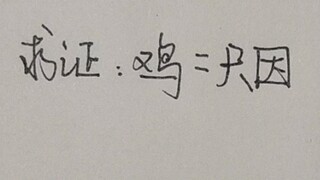 求证：鸡=只因